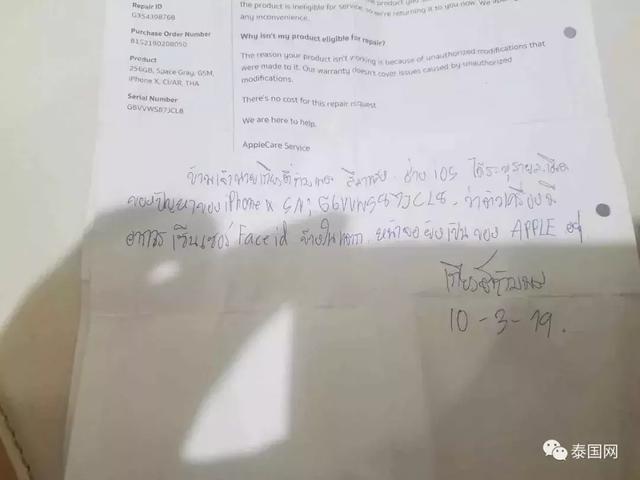 Repair ID
G354398768
Purchase Order Number
8152190208050
Product
256GB, Space Gray, GSM,
iPhone X, CI/AR, THA
Serial Number
G6VVWS87JCL8
the product is ineligible for service, so we're returning it to you now. We
any inconvenience.
Why isn't my product eligible for repair?
The reason your product isn't working is because of unauthorized modifications that
were made to it. Our warranty doesn't cover issues caused by unauthorized
modifications.
There's no cost for this repair request
We are here to help.
AppleCare Service
ข้าพเจ้านาย ช่าง iOS ได้ระบุรายละเอียด
ของปัญหาของ iPhone X SN; G6VVWS87JCL8. ว่าตัวเครื่องมี
อาการ เซ็นเซอร์ Face id หน้าจอยังเป็นของ APPLE อยู่
10-3-19.
泰国网